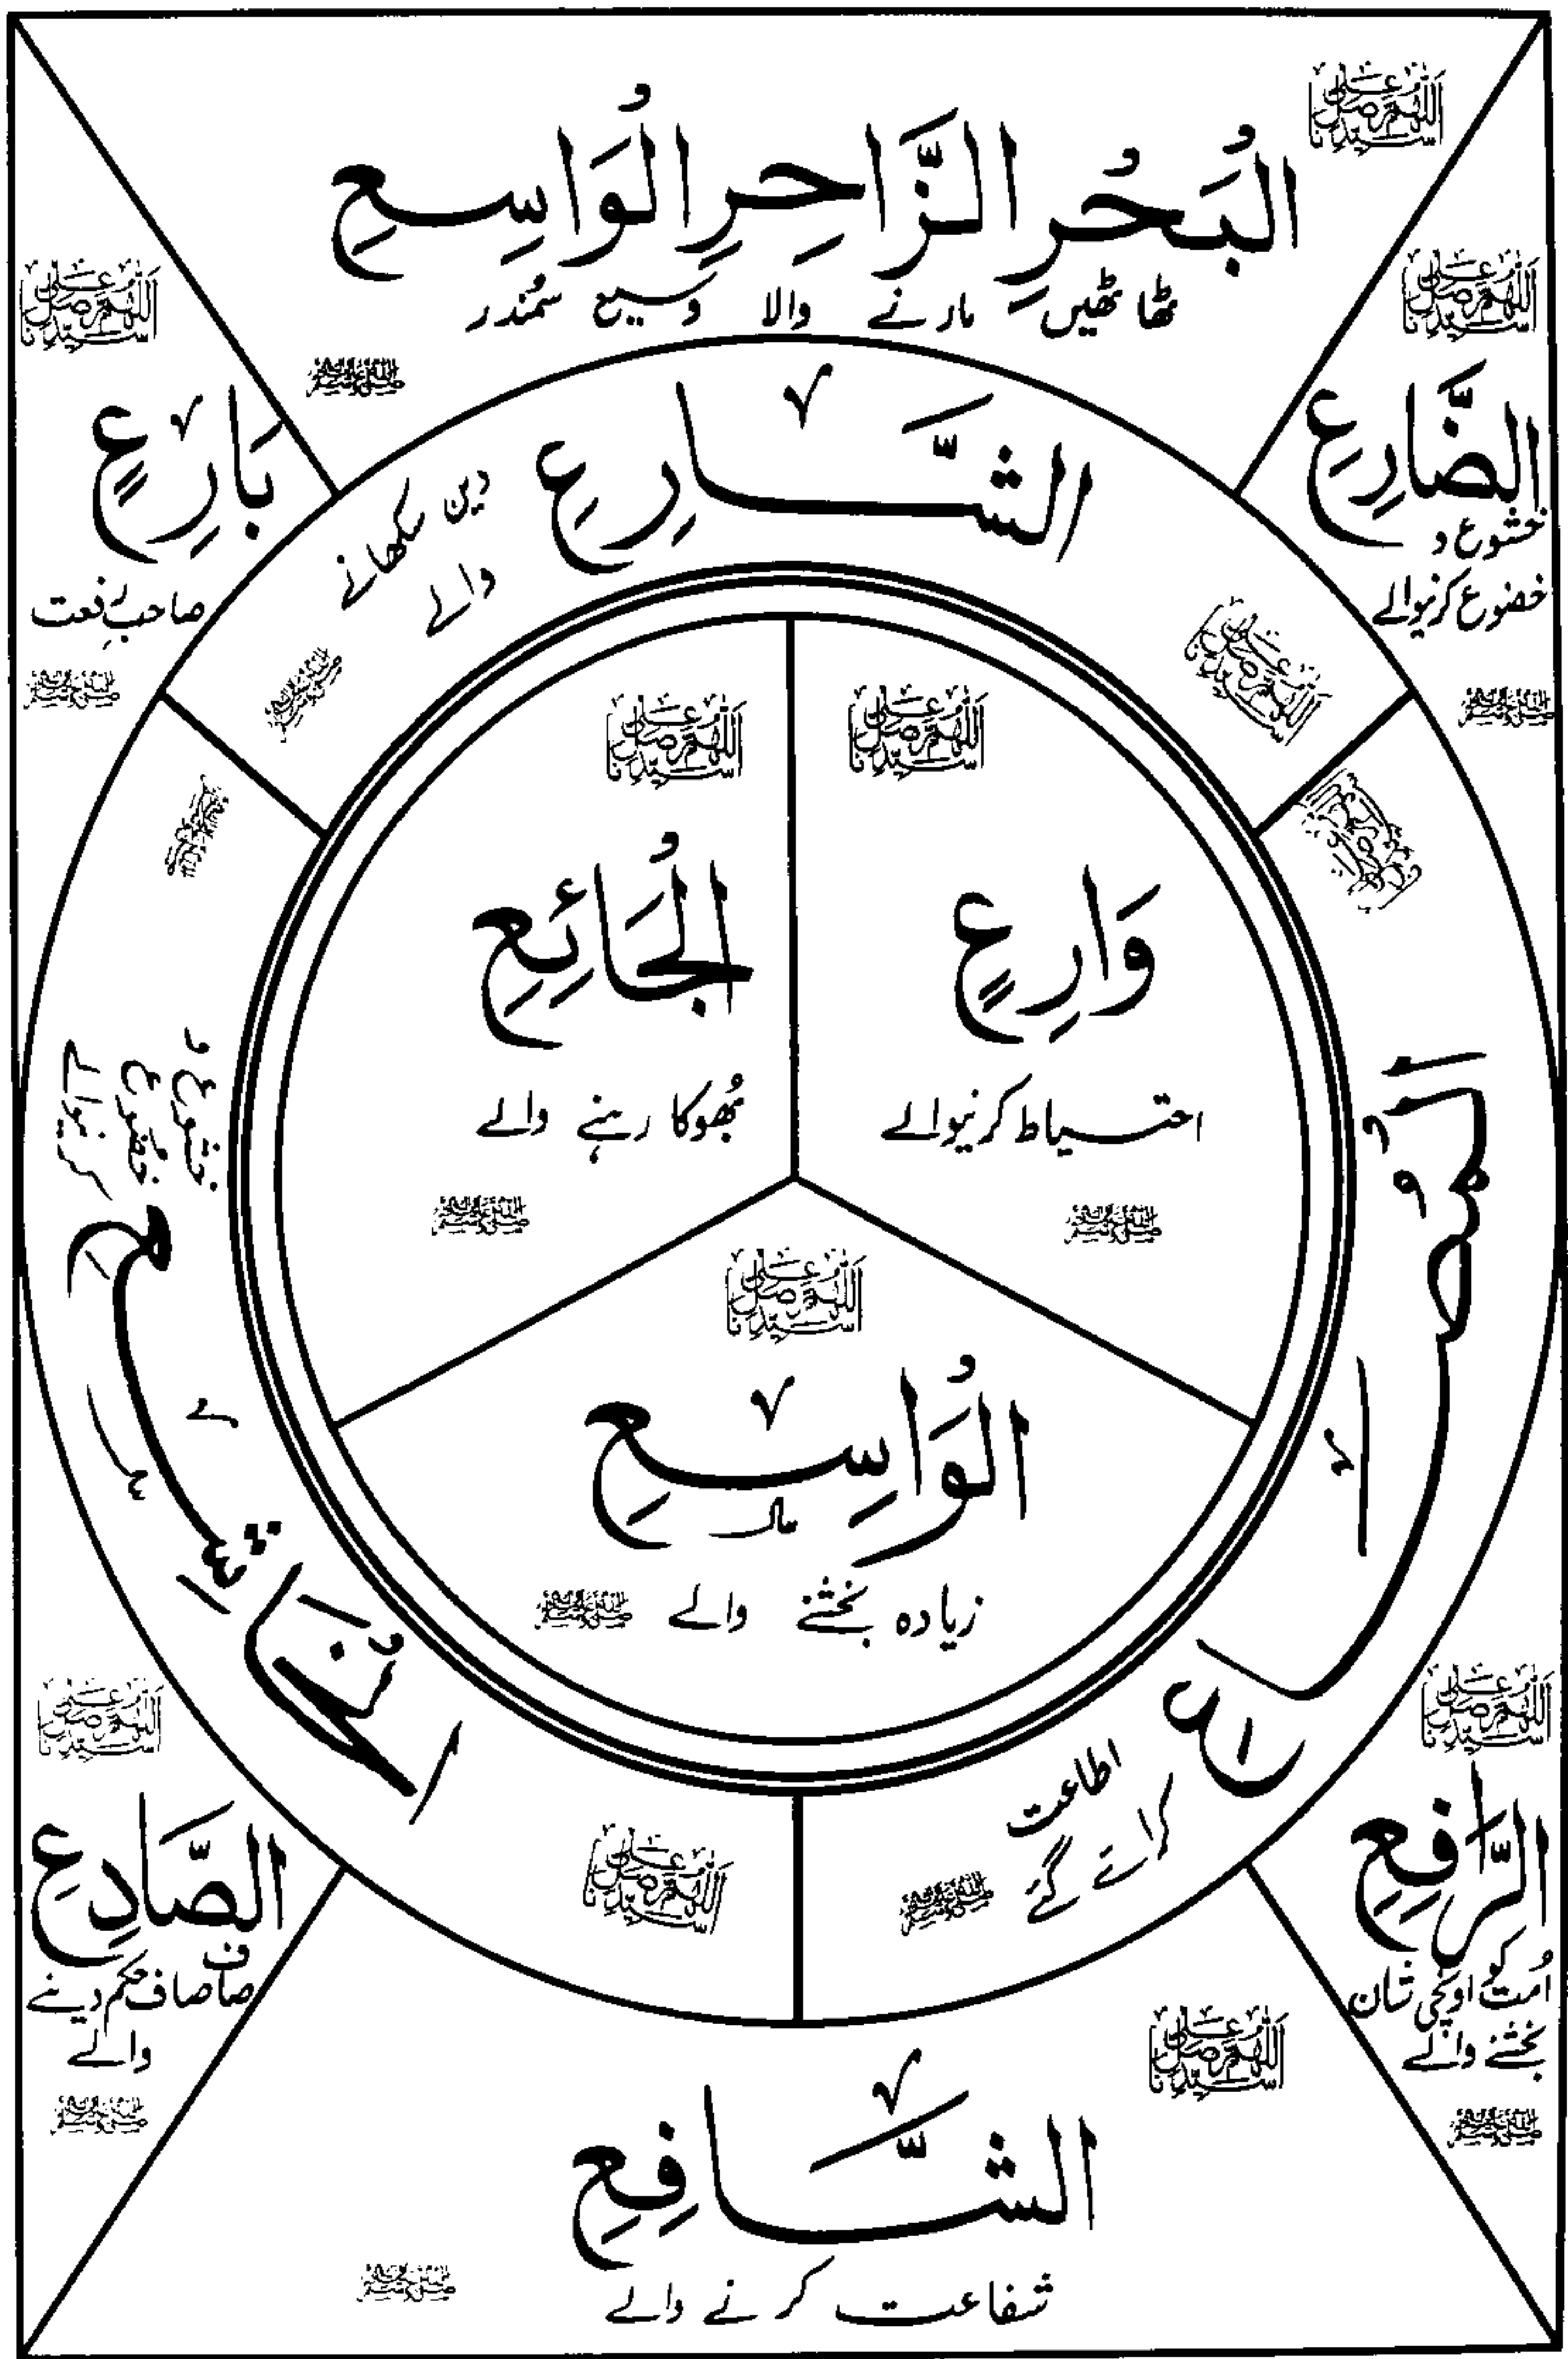 اَللّٰهُمَّ صَلِّ عَلٰی سَیِّدِنَا
الْبَحْرِ الزَّاخِرِ الْوَاسِعِ
ٹھاٹھیں مارنے والا وسیع سمندر
صلی اللہ علیہ وسلم
اَللّٰهُمَّ صَلِّ عَلٰی سَیِّدِنَا
الضَّارِعِ
خشوع و
خضوع کرنیوالے
صلی اللہ علیہ وسلم
اَللّٰهُمَّ صَلِّ عَلٰی سَیِّدِنَا
بَارِعٍ
صاحبِ رفعت
صلی اللہ علیہ وسلم
اَللّٰهُمَّ صَلِّ عَلٰی سَیِّدِنَا
الشَّارِعِ
دین سکھانے
والے
صلی اللہ علیہ وسلم
اَللّٰهُمَّ صَلِّ عَلٰی سَیِّدِنَا
وَارِعٍ
احتیاط کرنیوالے
صلی اللہ علیہ وسلم
اَللّٰهُمَّ صَلِّ عَلٰی سَیِّدِنَا
الْجَائِعِ
بھوکا رہنے والے
صلی اللہ علیہ وسلم
اَللّٰهُمَّ صَلِّ عَلٰی سَیِّدِنَا
الْوَاسِعِ
مال
زیادہ بخشنے والے صلی اللہ علیہ وسلم
اَللّٰهُمَّ صَلِّ عَلٰی سَیِّدِنَا
اطاعت
کرائے گئے
صلی اللہ علیہ وسلم
اَللّٰهُمَّ صَلِّ عَلٰی سَیِّدِنَا
الْخَاشِعِ
خشوع و
خضوع
کرنیوالے
صلی اللہ علیہ وسلم
اَللّٰهُمَّ صَلِّ عَلٰی سَیِّدِنَا
الرَّافِعِ
امت کو اونچی شان
بخشنے والے
صلی اللہ علیہ وسلم
اَللّٰهُمَّ صَلِّ عَلٰی سَیِّدِنَا
الصَّادِعِ
صاف صاف حکم دینے
والے
صلی اللہ علیہ وسلم
اَللّٰهُمَّ صَلِّ عَلٰی سَیِّدِنَا
الشَّافِعِ
شفاعت کرنے والے
صلی اللہ علیہ وسلم